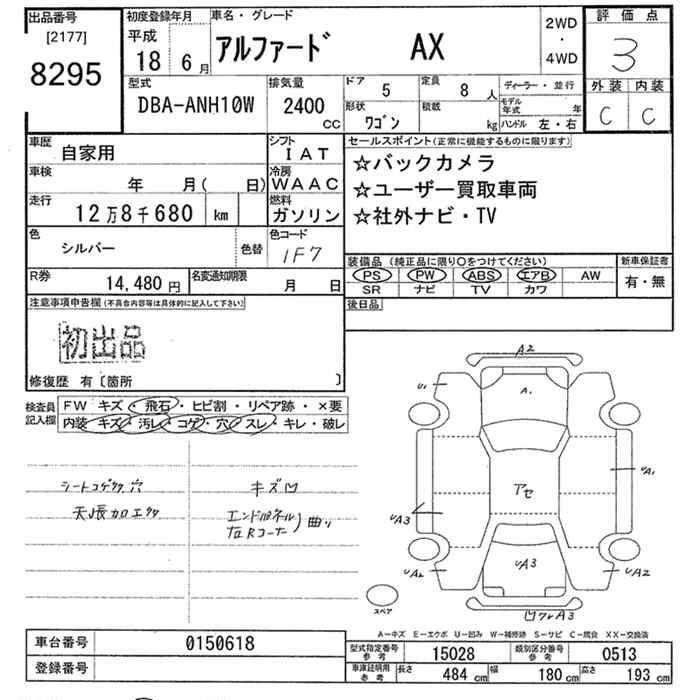 出品番号
[2177]
8295
初度登録年月
平成
18 6月
車名・グレード
アルファード AX
2WD
・
4WD
評価点
3
外装 内装
C C
型式
DBA-ANH10W
排気量
2400
CC
ドア 5
定員 8 人
形状 ワゴン
積載 kg
ディーラー・並行
モデル年式 年
ハンドル 左・右
車歴 自家用
車検 年 月( 日)
走行 12万8千680 km
色 シルバー 色替
R券 14,480 円
名変通知期限 月 日
シフト IAT
冷房 WAAC
燃料 ガソリン
色コード 1F7
セールスポイント(正常に機能するものに限ります)
☆バックカメラ
☆ユーザー買取車両
☆社外ナビ・TV
装備品 (純正品に限り〇をつけてください)
PS PW ABS エアB AW
SR ナビ TV カワ
新車保証書
有・無
後日品
注意事項申告欄(不具合内容等は具体的に記入して下さい)
初出品
修復歴 有〔箇所 〕
検査員記入欄
FW キズ・飛石・ヒビ割・リペア跡・×要
内装 キズ・汚レ・コゲ・穴・スレ・キレ・破レ
シートコゲ 穴
キズ凹
エンドパネル
右Rコーナー 曲り
A2
U1
A1
UA1
アセ
UA3
UA3
UA2
UA2
A3
スペア
A―キズ E―エクボ U―凹み W―補修跡 S―サビ C―腐食 XX―交換済
車台番号 0150618
登録番号
型式指定番号参考 15028
類別区分番号参考 0513
車庫証明用参考 長さ 484 cm 幅 180 cm 高さ 193 cm